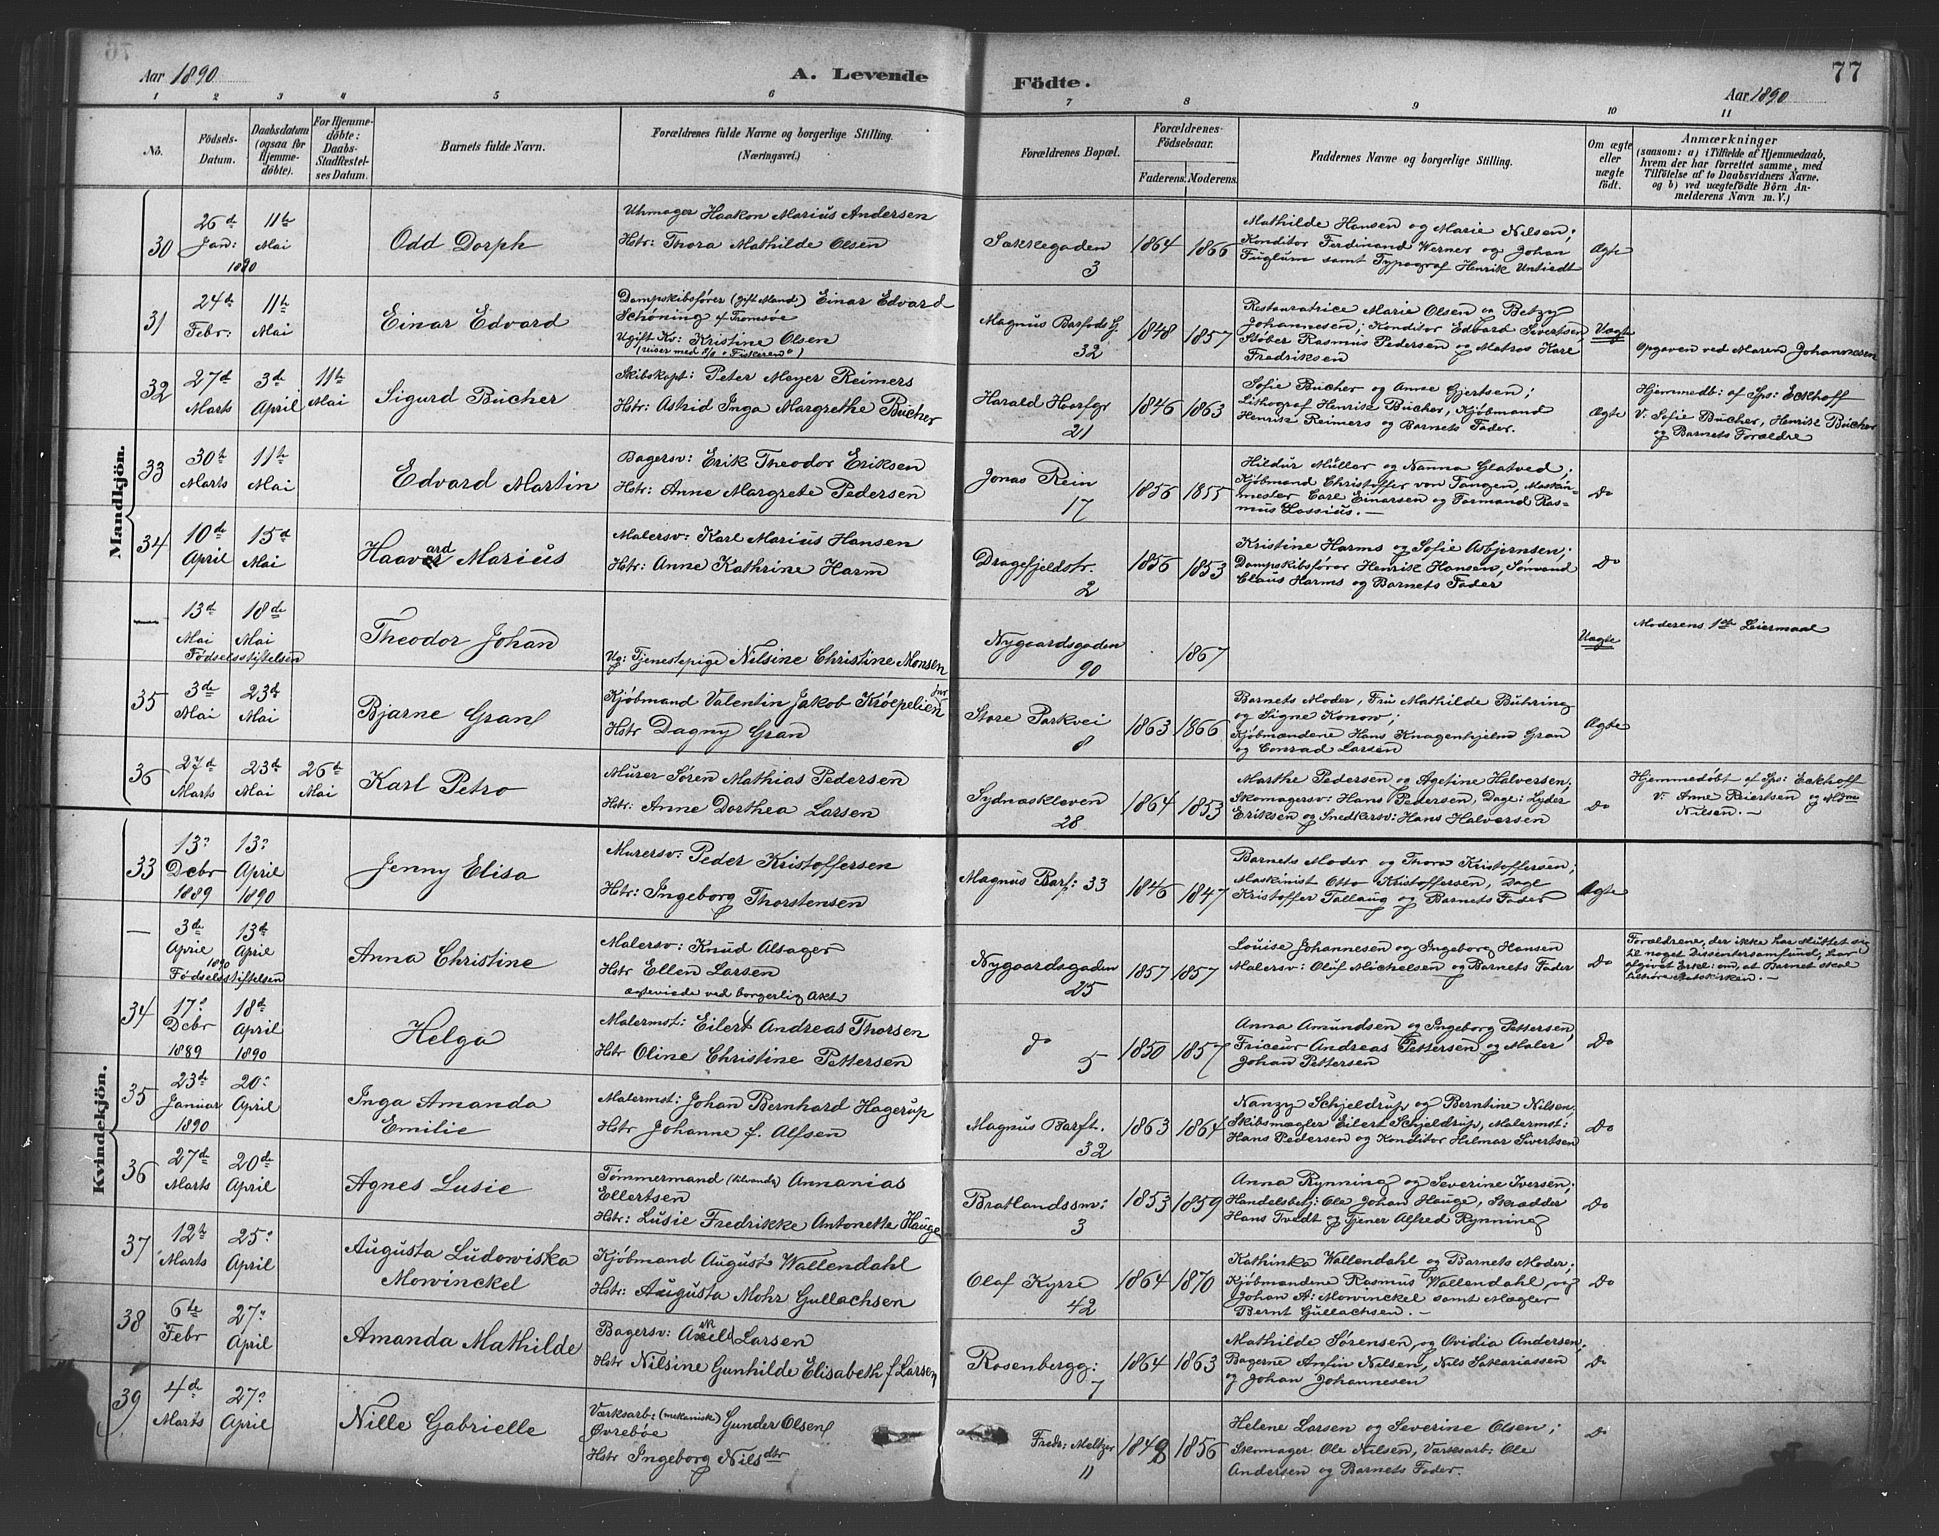 Aar 1890
A. Levende
Födte.
77
Aar 1890
1 2 3 4 5 6 7 8 9 10 11
No.
Födsels-Datum.
Daabsdatum (ogsaa for Hjemme-döbte).
For Hjemme-döbte: Daabs-Stadfæstel-ses Datum.
Barnets fulde Navn.
Forældrenes fulde Navne og borgerlige Stilling.
(Næringsvei.)
Forældrenes Bopæl.
Forældrenes Födselsaar.
Faderens. Moderens.
Faddernes Navne og borgerlige Stilling.
Om ægte eller uægte födt.
Anmærkninger
(saasom: a) i Tilfælde af Hjemmedaab, hvem der har forrettet samme, med Tilföielse af to Daabsvidners Navne. og b) ved uægtefödte Börn An-melderens Navn m. V.)
Mandkjön.
30
26de Jan: 1890
11te Mai
Odd Dorph
Uhrmager Haakon Marius Andersen
Hstr: Thora Mathilde Olsen
Sækkegaden 3
1864 1866
Mathilde Hansen og Marie Nilsen;
Konditor Ferdinand Werner og Johan
Fuglum samt Typograf Henrik Untiedt
Ægte
31
24de Febr:
11te Mai
Einar Edvard
Dampskibsfører (gift Mand) Einar Edvard
Schøning af Tromsøe
Ugift Ko: Kristine Olsen
(reiser med S/s "Fiskeren")
Magnus Barfods G. 32
1848 1857
Restauratrice Marie Olsen og Betzy
Johannesen; Konditor Edvard Sivertsen,
Støber Rasmus Pedersen og Matros Karl
Fredriksen
Uægte
Opgaven ved Maren Johannesen
32
27de Marts
3de April
11te Mai
Sigurd Bücher
Skibskapt: Peter Meyer Reimers
Hstr: Astrid Inga Margrethe Bücher
Harald Haarfgr 21
1846 1863
Sofie Bücher og Anne Gjertsen;
Lithograf Henrik Bücher, Kjøbmand
Henrik Reimers og Barnets Fader.
Ægte
Hjemmedb: af Sps: Eckhoff
V: Sofie Bücher, Henrik Bücher
og Barnets Forældre
33
30te Marts
11te Mai
Edvard Martin
Bagersv: Erik Theodor Eriksen
Hstr: Anne Margrete Pedersen
Jonas Rein 17
1856 1855
Hildur Müller og Nanna Glatved;
Kjøbmand Christoffer von Tangen, Maskin-
mester Carl Einarsen og Formand Ras-
mus Lossius. —
Do
34
10de April
15de Mai
Haavard Marius
Malersv: Karl Marius Hansen
Hstr: Anne Kathrine Harm
Dragefjeldstr. 2
1856 1853
Kristine Harms og Sofie Asbjørnsen;
Dampskibsfører Henrik Hansen, Sømand
Claus Harms og Barnets Fader
Do
—
13de Mai
18de Mai
Fødselsstiftelsen
Theodor Johan
Ug: Tjenestepige Nilsine Christine Monsen
Nygaardsgaden 90
1867
Uægte
Moderens 1ste Leiermaal
35
3de Mai
23de Mai
Bjarne Gran
Kjøbmand Valentin Jakob Krøepelien jnr
Hstr Dagny Gran
Store Parkvei 8
1863 1866
Barnets Moder, Fru Mathilde Bühring
og Signe Konow;
Kjøbmændene Hans Knagenhjelm Gran
og Conrad Larsen
Ægte
36
27de Marts
23de Mai
26de Mai
Karl Petro
Murer Søren Mathias Pedersen
Hstr: Anne Dorthea Larsen
Sydneskleven 28
1864 1853
Marthe Pedersen og Agetine Halversen;
Skomagersv: Hans Pedersen, Dagl: Lyder
Eriksen og Snedkersv: Hans Halversen
Do
Hjemmedøbt af Sps: Eckhoff
V: Anne Reiertsen og Mdme
Nilsen. —
Kvindekjön.
33
13: Dcbr 1889
13: April 1890
Jenny Elisa
Murersv: Peder Kristoffersen
Hstr: Ingeborg Thorstensen
Magnus Barf: 33
1846 1847
Barnets Moder og Thora Kristoffersen;
Maskinist Otto Kristoffersen, Dagl
Kristoffer Tallaug og Barnets Fader
Ægte
—
3de April 1890
13de April
Fødselsstiftelsen
Anna Christine
Malersv: Knud Alsager
Hstr Ellen Larsen
ægteviede ved borgerlig Akt
Nygaardsgaden 25
1857 1857
Louise Johannesen og Ingeborg Hansen
Malersv: Oluf Michelsen og Barnets Fader
Do
Forældrene, der ikke har sluttet sig
til noget Dissentersamfund, har
afgivet Erkl: om, at Barnet skal
tilhøre Statskirken. —
34
17: Dcbr 1889
18de April 1890
Helga
Malermst: Eilert Andreas Thorsen
Hstr Oline Christine Pettersen
do 5
1850 1857
Anna Amundsen og Ingeborg Pettersen,
Friceur Andreas Pettersen og Maler
Johan Pettersen
Do
35
23de Januar 1890
20: April
Inga Amanda
Emilie
Malermst: Johan Bernhard Hagerup
Hstr Johanne f. Alfsen
Magnus Barft. 32
1863 1864
Nanzy Schjeldrup og Berntine Nilsen,
Skibsmægler Eilert Schjeldrup, Malermst:
Hans Pedersen og Konditor Hilmar Sivertsen
Do
36
27de Marts
20de April
Agnes Lusie
Tømmermand Annanias
Ellertsen
Hstr: Lusie Fredrikke Antonette Hauge
Bratlandssm: 3
1853 1859
Anna Rynning og Severine Iversen;
Handelsbetj: Ole Johan Hauge, Skrædder
Hans Tvedt og Tjener Alfred Rynning
Do
37
12te Marts
25: April
Augusta Ludowiska
Mowinckel
Kjøbmand August Wallendahl
Hstr: Augusta Mohr Gullachsen
Olaf Kyrre 42
1864 1870
Kathinka Wallendahl og Barnets Moder;
Kjøbmændene Rasmus Wallendahl og
Johan A: Mowinckel samt Mægler
Bernt Gullachsen. —
Do
38
6te Febr
27: April
Amanda Mathilde
Bagersv: Axel Larsen
Hstr Nilsine Gunhilde Elisabeth f Larsen
Rosenbergg: 7
1864 1863
Mathilde Sørensen og Ovidia Andersen,
Bagerne Anfin Nilsen, Nils Sakariassen
og Johan Johannesen
Do
39
4de Marts
27: April
Nille Gabrielle
Værksarb: (mekaniske) Gunder Olsen
Øvrebøe
Hstr Ingeborg Nilsdtr
Fredr: Meltzer 11
1848 1856
Helene Larsen og Severine Olsen;
Skomager Ole Nilsen, Værksarb: Ole
Andersen og Barnets Fader.
Do